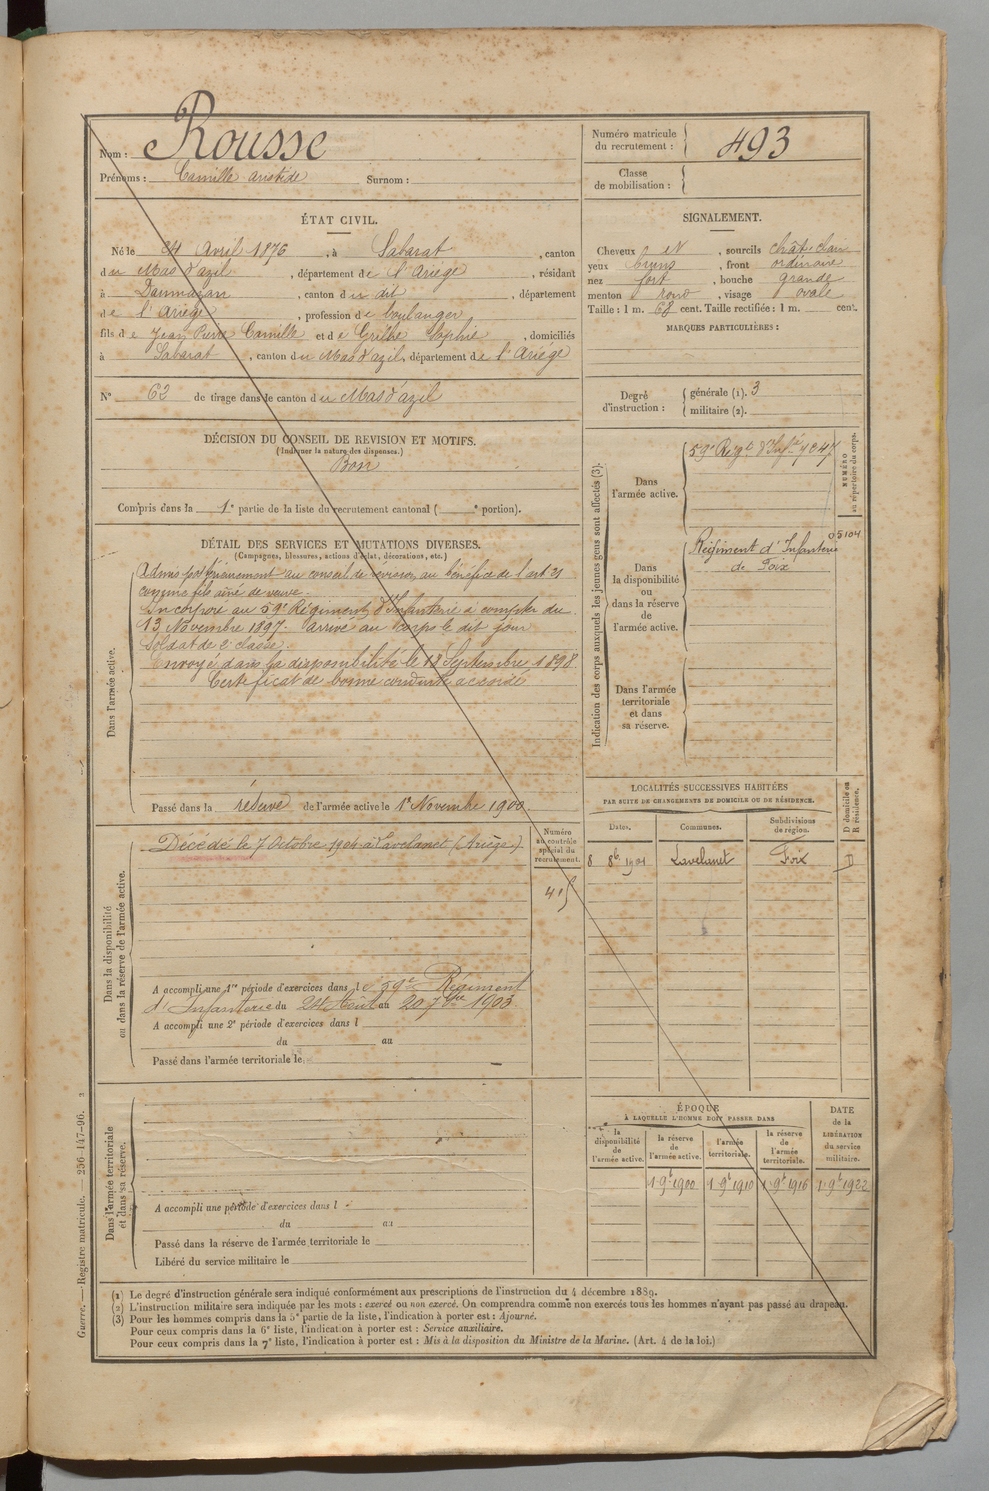 Nom : Rousse
Prénoms : Camille Aristide Surnom :
Numéro matricule du recrutement : 493
Classe de mobilisation :
ÉTAT CIVIL.
Né le Avril 1876, à Sabarat, canton
du Mas d'azil, département de l'Ariège, résidant
à Daumazan, canton du dit, département
de l'Ariège, profession de boulanger
fils de Jean Pierre Camille et de Grilhe Sophie, domiciliés
à Sabarat, canton du Mas d'azil, département de l'Ariège
SIGNALEMENT.
Cheveux et, sourcils chât. clair
yeux bruns, front ordinaire
nez fort, bouche grande
menton rond, visage ovale
Taille : 1 m. 68 cent. Taille rectifiée : 1 m. cent.
MARQUES PARTICULIÈRES :
N° 62 de tirage dans le canton du Mas d'azil
Degré d'instruction : générale (1). 3
militaire (2).
DÉCISION DU CONSEIL DE REVISION ET MOTIFS.
(Indiquer la nature des dispenses.)
Bon
Compris dans la 1e partie de la liste du recrutement cantonal ( e portion).
DÉTAIL DES SERVICES ET MUTATIONS DIVERSES.
(Campagnes, blessures, actions d'éclat, décorations, etc.)
Dans l'armée active.
Admis postérieurement au conseil de révision au bénéfice de l'art 21
comme fils aîné de veuve.
Incorporé au 59e Régiment d'Infanterie à compter du
13 Novembre 1897. Arrivé au corps le dit jour
Soldat de 2e classe.
Envoyé dans la disponibilité le 18 Septembre 1898.
Certificat de bonne conduite accordé
Passé dans la réserve de l'armée active le 1er Novembre 1900.
Indication des corps auxquels les jeunes gens sont affectés (3).
NUMÉRO au répertoire du corps.
Dans l'armée active.
59e Régt d'Infie 7247
Dans la disponibilité ou dans la réserve de l'armée active.
Régiment d'Infanterie
de Foix
05104
Dans l'armée territoriale et dans sa réserve.
LOCALITÉS SUCCESSIVES HABITÉES
PAR SUITE DE CHANGEMENTS DE DOMICILE OU DE RÉSIDENCE.
Dates. Communes. Subdivisions de région. D domicile ou R résidence.
8 8b 1901 Lavelanet Foix D
Dans la disponibilité ou dans la réserve de l'armée active.
Numéro au contrôle spécial du recrutement.
Décédé le 7 Octobre 1904 à Lavelanet (Ariège).
A accompli une 1re période d'exercices dans le 59e Régiment
d'Infanterie du 24 Août au 20 7bre 1903
A accompli une 2e période d'exercices dans l
du au
Passé dans l'armée territoriale le
ÉPOQUE
À LAQUELLE L'HOMME DOIT PASSER DANS
la disponibilité de l'armée active. la réserve de l'armée active. l'armée territoriale. la réserve de l'armée territoriale.
DATE de la LIBÉRATION du service militaire.
1 9b 1900 1 9b 1910 1 9b 1916 1 9b 1922
Dans l'armée territoriale et dans sa réserve.
A accompli une période d'exercices dans l
du au
Passé dans la réserve de l'armée territoriale le
Libéré du service militaire le
(1) Le degré d'instruction générale sera indiqué conformément aux prescriptions de l'instruction du 4 décembre 1889.
(2) L'instruction militaire sera indiquée par les mots : exercé ou non exercé. On comprendra comme non exercés tous les hommes n'ayant pas passé au drapeau.
(3) Pour les hommes compris dans la 5e partie de la liste, l'indication à porter est : Ajourné.
Pour ceux compris dans la 6e liste, l'indication à porter est : Service auxiliaire.
Pour ceux compris dans la 7e liste, l'indication à porter est : Mis à la disposition du Ministre de la Marine. (Art. 4 de la loi.)
Guerre. — Registre matricule. — 256-147-96. 2